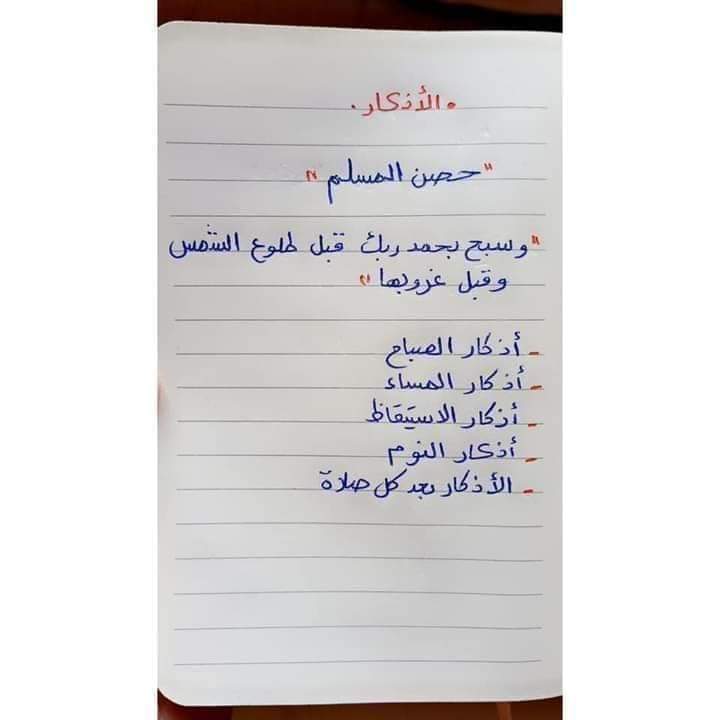 • الأذكار •
" حصن المسلم "
" وسبح بحمد ربك قبل طلوع الشمس
وقبل غروبها "
- أذكار الصباح
- أذكار المساء
- أذكار الاستيقاظ
- أذكار النوم
- الأذكار بعد كل صلاة